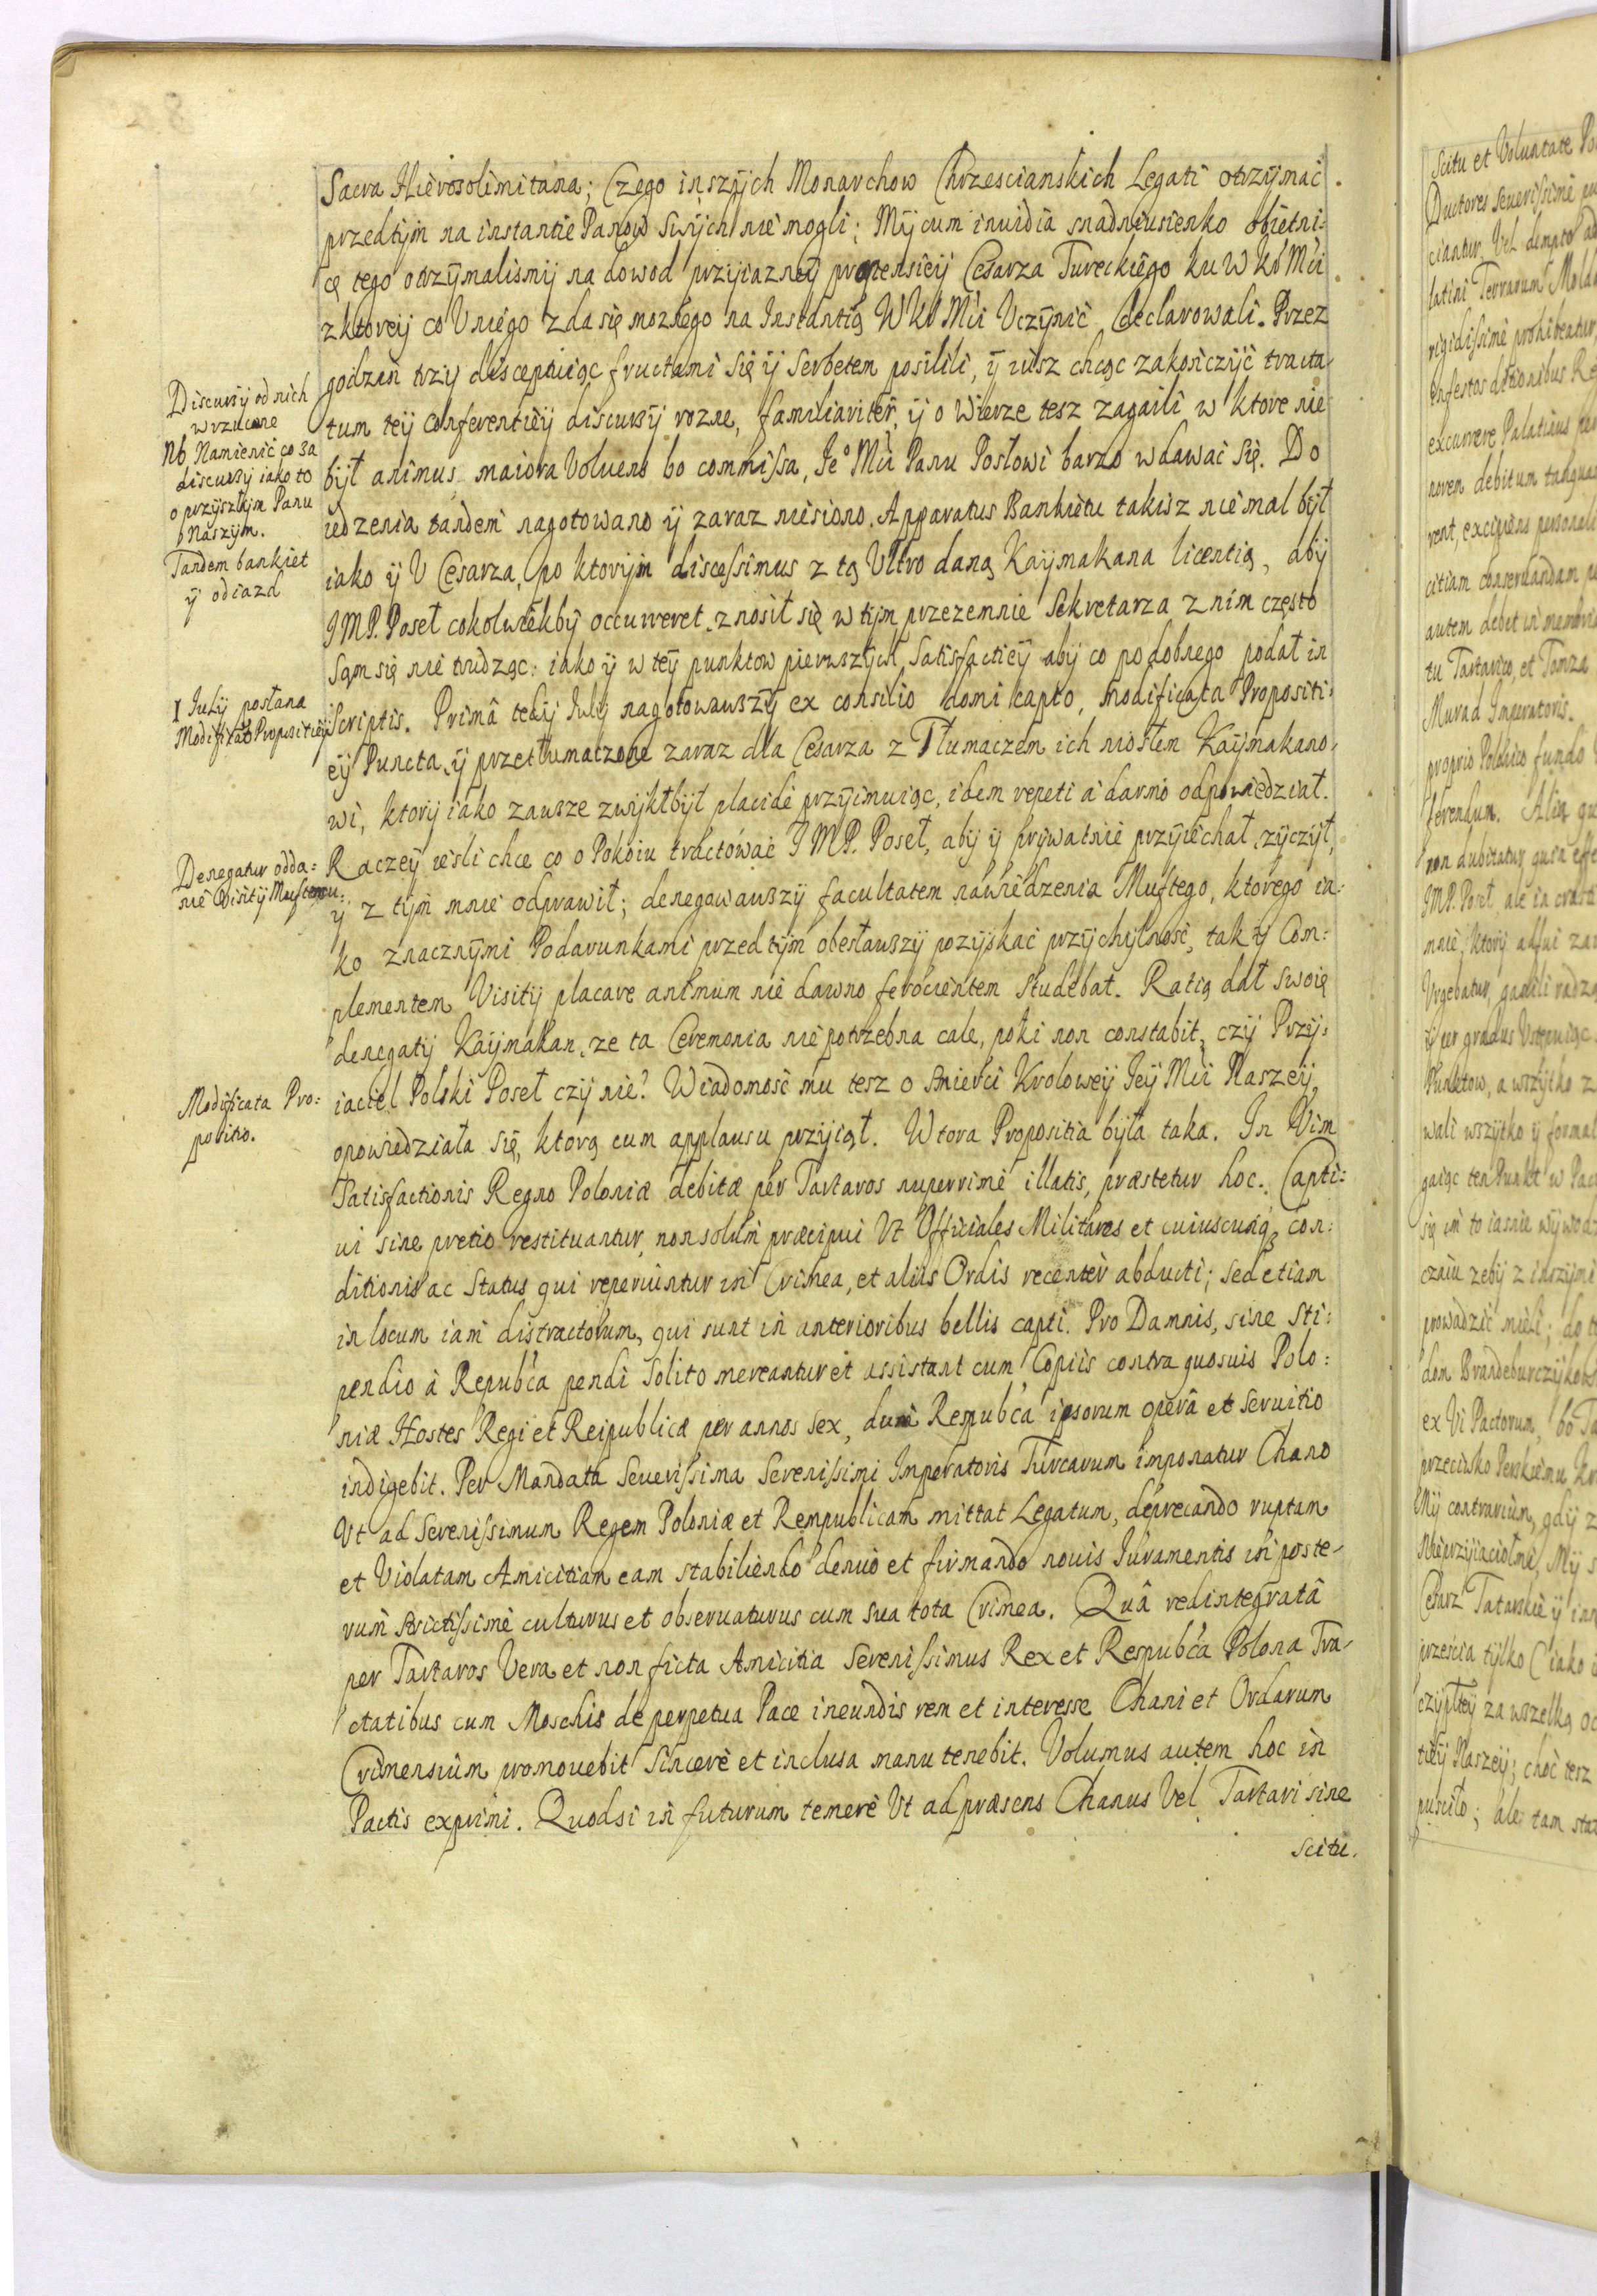 Sacra Hierosolimitana; Czego inszych Monarchow Chrzescianskich Legati otrzymać
przedtym na instantie Panow swych nie mogli; My cum inuidia snadniusienko obietni:
cę tego otrzymalismy na dowod przyiazney propensiey Cesarza Tureckiego ku W Kr Mci
z ktorey co U niego zda się moznego na Instantią W Kr Mci Uczynić declarowali. Przez
godzin trzy disceptuiąc fructami się y Serbetem posilili, y iusz chcąc zakończyć tracta-
tum tey Conferentiey discursy rozne, familiariter, y o Wierze tesz zagaili w ktore nie
był animus maiora Voluens bo commissa, Jeº Mci Panu Posłowi barzo wdawać się. Do
iedzenia tandem nagotowano y zaraz niesiono. Apparatus Bankietu takisz niemal był
iako y U Cesarza, po ktorym discessimus z tą Ultro daną Kaymakana licentią, aby
JMP. Poseł cokolwiekby occurreret, znosił się w tym przezemnie Sekretarza z nim często
Sam się nie trudząc: iako y w tey punktow pierwszych Satisfactiey aby co podobnego podał in
Scriptis. Primâ tedy July nagotowawszy ex consilio domi capto, modificata Propositi:
ey Puncta, y przetłumaczone zaraz dla Cesarza z Tłumaczem ich niosłem Kaymakano-
wi, ktory iako zawsze zwykł był placidè przyimuiąc, idem repeti à darmo odpowiedział.
Raczey iesli chce co o Pokoiu tractować JMP. Poseł, aby y prywatnie przyiechał zyczył,
y z tym mnie odprawił; denegowawszy facultatem nawiedzenia Muftego, ktorego ia-
ko znacznymi Podarunkami przedtym obesławszy pozyskać przychylność, tak y Com:
plementem Visity placare animum nie dawno ferocientem studebat. Ratią dał swoię
denegaty Kaymakan, ze ta Ceremonia niepotrzebna cale, poki non constabit, czy Przy:
iaciel Polski Poseł czy nie? Wiadomosć mu tesz o Smierci Krolowey Jey Mci Naszey
opowiedziała się, ktorą cum applausu przyiął. Wtora Propositia była taka. In Vim
Satisfactionis Regno Poloniæ debitæ per Tartaros nuperrimè illatis, præstetur hoc. Capti:
ui sine pretio restituantur, non solum præcipui Ut Officiales Militares et cuiuscunq3 con:
ditionis ac Status qui reperiuntur in Crimea, et aliis Ordis recenter abducti; sed etiam
in locum iam distractorum, qui sunt in anterioribus bellis capti. Pro Damnis, sine Sti:
pendio à Repubca pendi solito mereantur et assistant cum Copiis contra quosuis Polo:
niæ Hostes Regi et Reipublicæ per annos sex, dum Respubca ipsorum operâ et Seruitio
indigebit. Per Mandata Seuerissima Serenissimi Imperatoris Turcarum imponatur Chano
Ut ad Serenissimum Regem Poloniæ et Rempublicam mittat Legatum, deprecando ruptam
et Violatam Amicitiam eam stabiliendo denuò et firmando nouis Iuramentis in poste-
rum strictissimè culturus et obseruaturus cum sua tota Crimea. Quâ redintegratâ
per Tartaros Vera et non ficta Amicitia Serenissimus Rex et Respubca Polona Tra-
ctatibus cum Moschis de perpetua Pace ineundis rem et interesse Chani et Ordarum
Crimensium promouebit Sincerè et inclusa manu tenebit. Volumus autem hoc in
Pactis exprimi. Quodsi in futurum temerè Ut ad præsens Chanus Vel Tartari sine
scitu.
Discursy od nich
wrzucone
Nb Namienić co za
discursy iako to
o przyszłym Panu
Naszym.
Tandem bankiet
y odiazd
1 July posłana
Modificata Propositiey
Denegatur odda:
nie Visity Muftemu.
Modificata Pro:
positio.
Scitu et Voluntate
Ductores Seuerissimè
ciantur, Vel
latini Terrarum
rigidissimè prohibeatur
infestos ditionibus
excurrere Palatinus
norem debitum
rent, excipiens
citiam conseruandam
autem debet in
tu Tartarico, et
Murad Imperatoris.
proprio Polonico fundo
ferendum.
non dubitatur quin
JMP. Poseł ale in
mnie, ktory
Urgebatur,
per gradus Ustępuiąc
Punctow, a wszytko z
wali wszytko y
gaiąc ten Punkt w
się im to iasnie
czaiu zeby z inszymi
prowadzić mieli;
dom Brandeburczyków
ex Vi Pactorum, bo
przeciwko Perskiemu
My contrarium, gdy z
Nieprzyiaciołmi, My
Cesarz Tatarskie y
przeiscia tylko (iako
za wszelką
tiey Naszey; choć tesz
puscito; ale tam